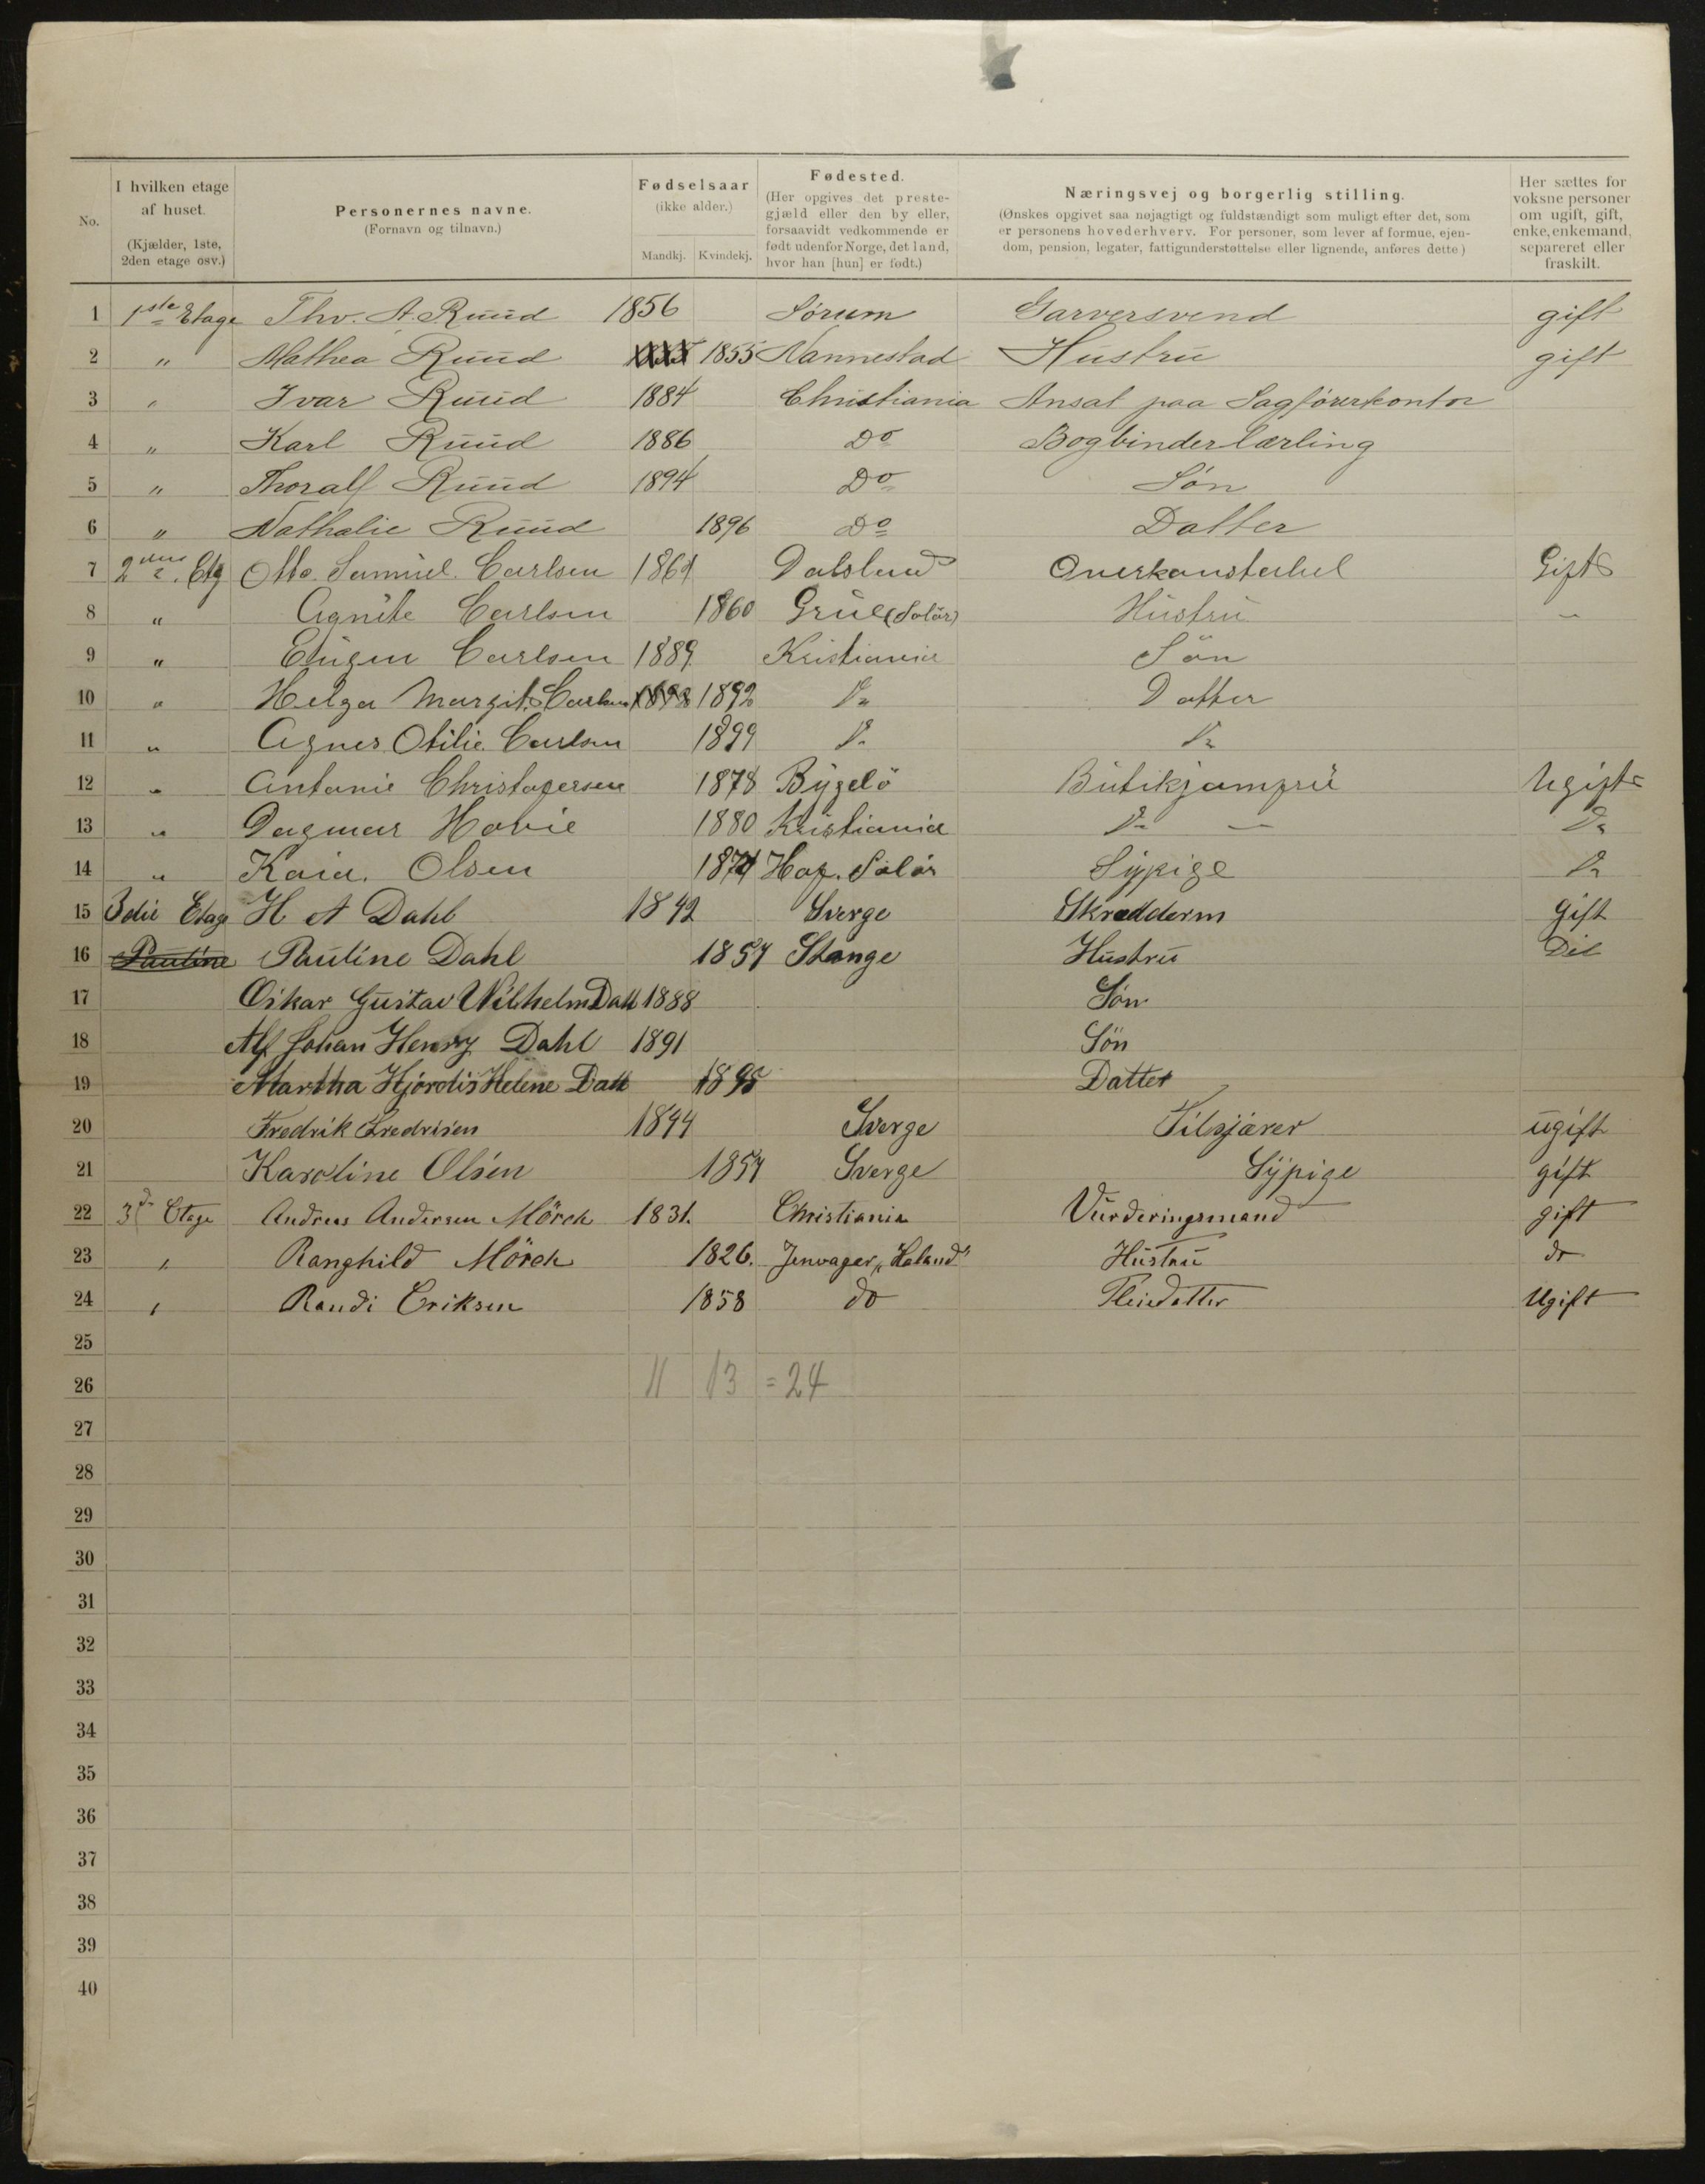 No. I hvilken etage af huset. (Kjælder, 1ste, 2den etage osv.) Personernes navne. (Fornavn og tilnavn.) Fødselsaar (ikke alder.) Mandkj. Kvindekj. Fødested. (Her opgives det prestegjæld eller den by eller, forsaavidt vedkommende er født udenfor Norge, det land, hvor han [hun] er født.) Næringsvej og borgerlig stilling. (Ønskes opgivet saa nøjagtigt og fuldstændigt som muligt efter det, som er personens hovederhverv. For personer, som lever af formue, ejendom, pension, legater, fattigunderstøttelse eller lignende, anføres dette) Her sættes for voksne personer om ugift, gift, enke, enkemand, separeret eller fraskilt.
1 1ste Etage Thv. A. Ruud 1856 Sørum Garversvend gift
2 " Mathea Ruud 1855 Nannestad Hustru gift
3 " Ivar Ruud 1884 Christiania Ansat paa Sagførerkontor
4 " Karl Ruud 1886 Do Bogbinderlærling
5 " Thoralf Ruud 1894 Do Søn
6 " Nathalie Ruud 1896 Do Datter
7 Etg Otto Samuel Carlsen Dalsland Overkonstabel Gift
8 " Agnite Carlsen 1860 Grue (Solör) Hustru –
9 " Eugen Carlsen 1889 Kristiania Sön
10 " Helga Margit Carlsen 1892 Do Datter
11 " Agnes Otilie Carlsen 1899 Do Do
12 " Antonie Christofersen 1878 Bygdö Butikjomfru Ugift
13 " Dagmar Hovie 1880 Kristiania Do – Do
14 " Kaia. Olsen Hof. Solör Sypige Do
15 3die Etage H A Dahl 1842 Sverge Skrædderm gift
16 Pauline Pauline Dahl 1857 Stange Hustru Do
17 Oskar Gustav Wilhelm Dahl 1888 Søn
18 Alf Johan Henry Dahl 1891 Søn
19 Martha Hjørdis Helene Dahl 1895 Datter
20 Fredrik Fredrisen 1844 Sverge ugift
21 Karoline Olsen 1857 Sverge Sypige gift
22 3d Etage Andreas Andersen Mörch 1831. Christiania Vurderingsmand gift
23 " Ranghild Mörch 1826. "Høland" Hustru do
24 " Randi Eriksen 1858 do Pleiedatter Ugift
25
26 11 13 = 24
27
28
29
30
31
32
33
34
35
36
37
38
39
40